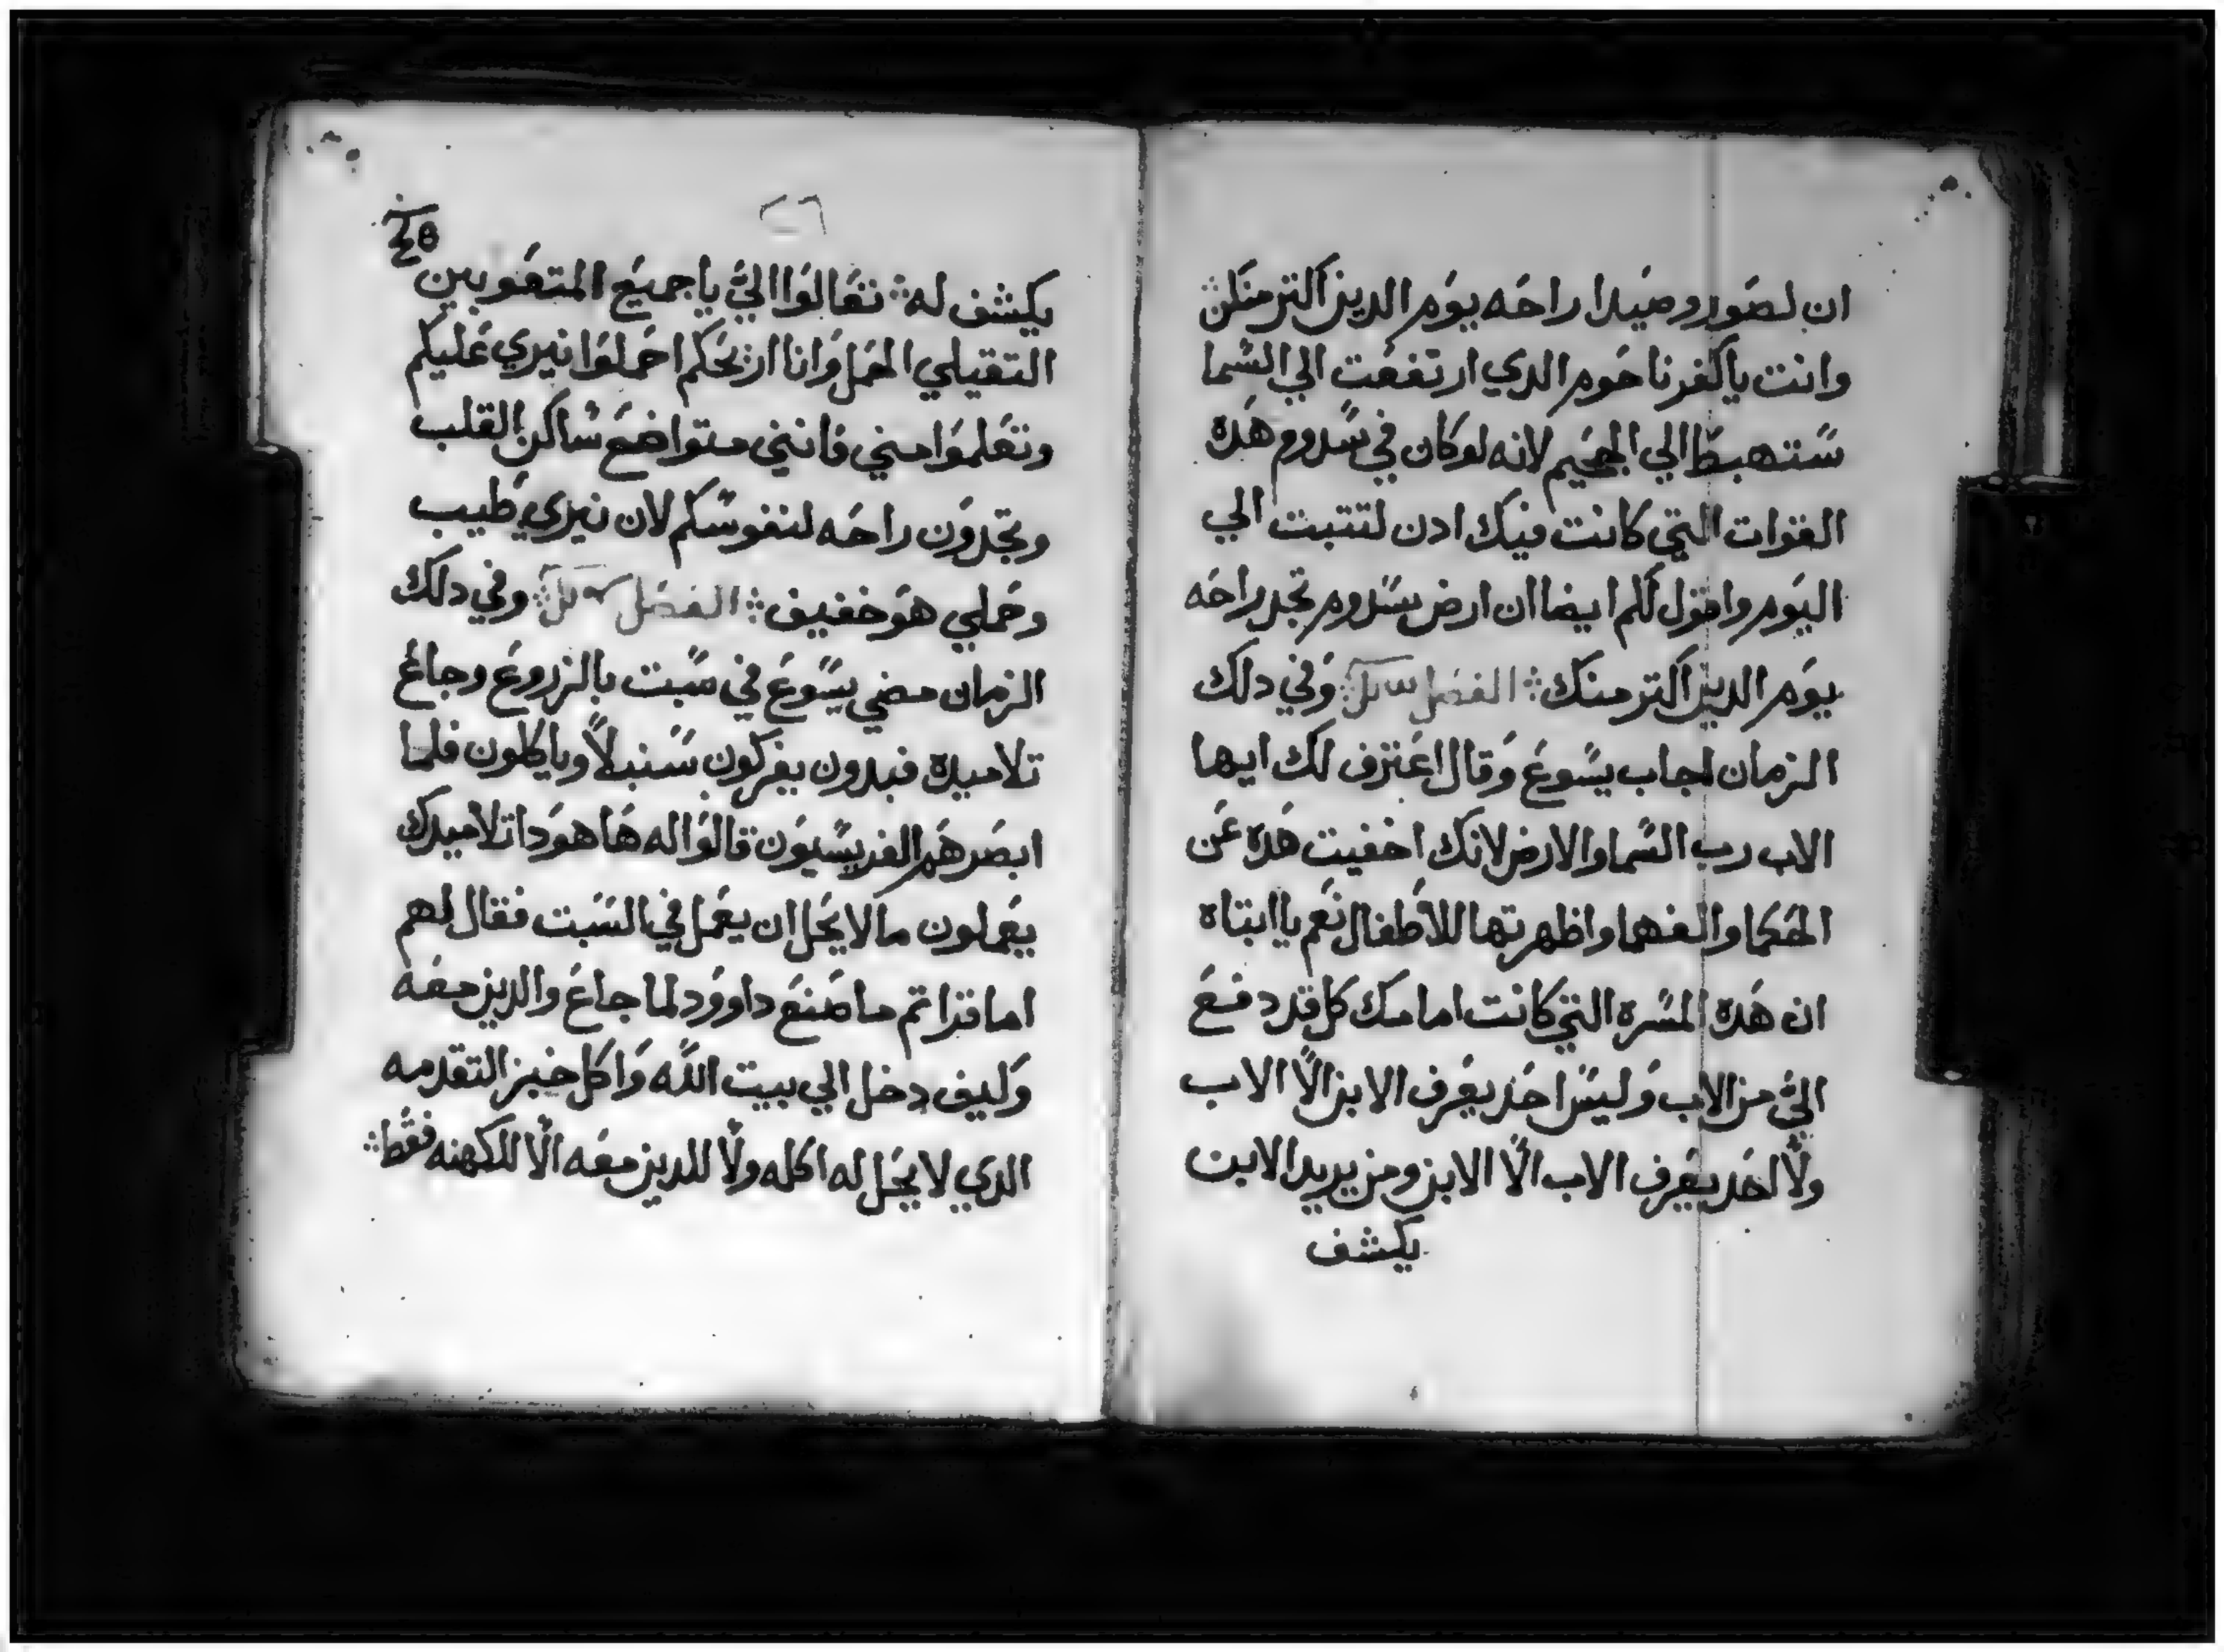 ان لصور وصيدا راحه يوم الدين اكتر منكن
وانت يا كفرناحوم الدي ارتفعت الي السما
ستهبط الي الجحيم لانه لو كان في سدوم هده
القوات التي كانت فيك ادن لتتبت الي
اليوم واقول لكم ايضا ان ارض سدوم تجد راحه
يوم الدين اكتر منك ܀ الفصل ܀ وفي دلك
الزمان اجاب يسوع وقال اعترف لك ايها
الاب رب السما والارض لانك اخفيت هده عن
الحكما والفهما واظهرتها للاطفال نعم يا ابتاه
ان هده المسره التي كانت امامك كل قد دفع
الي من الاب وليس احد يعرف الابن الا الاب
ولا احد يعرف الاب الا الابن ومن يريد الابن
يكشف
٢٦
يكشف له ܀ تعالوا الي يا جميع المتعوبين
التقيلي الحمل وانا اريحكم احملوا نيري عليكم
وتعلموا مني فانني متواضع ساكن القلب
وتجدون راحه لنفوسكم لان نيري طيب
وحملي هو خفيف ܀ الفصل ܀ وفي دلك
الزمان مضي يسوع في سبت بالزروع وجاع
تلاميده فبدون يفركون سنبلاً وياكلون فلما
ابصرهم الفريسيون قالوا له ها هودا تلاميدك
يعملون ما لا يحل ان يعمل في السبت فقال لهم
اما قراتم ما صنع داوود لما جاع والدين معه
وكيف دخل الي بيت الله واكل خبز التقدمه
الدي لا يحل له اكله ولا للدين معه الا للكهنه فقط ܀